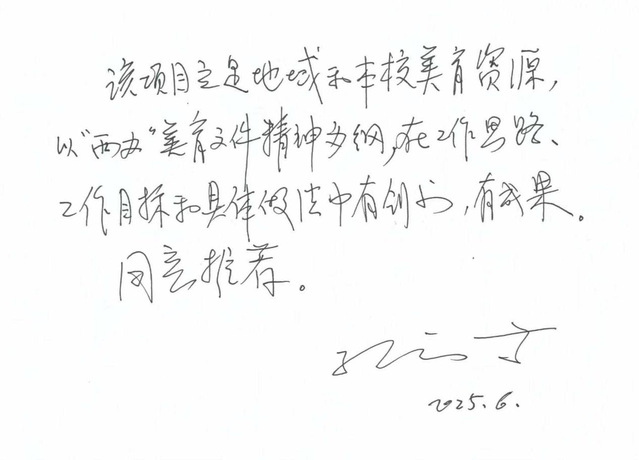 该项目立足地域和本校美育资源，
以"两办"美育文件精神为纲，在工作思路、
工作目标和具体做法中有创新，有成果。
同意推荐。
2025.6.